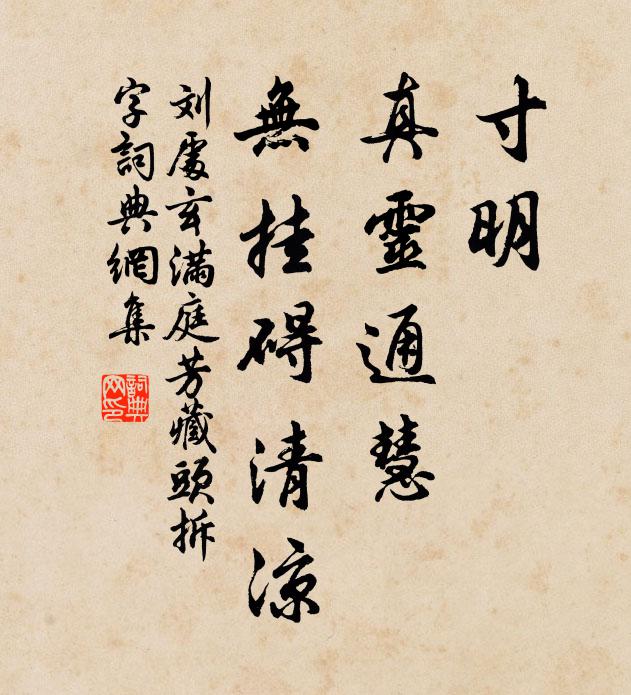 寸明
真靈通慧
無挂碍清涼
刘處玄滿庭芳藏頭拆
字詞典網集
詞典
网印